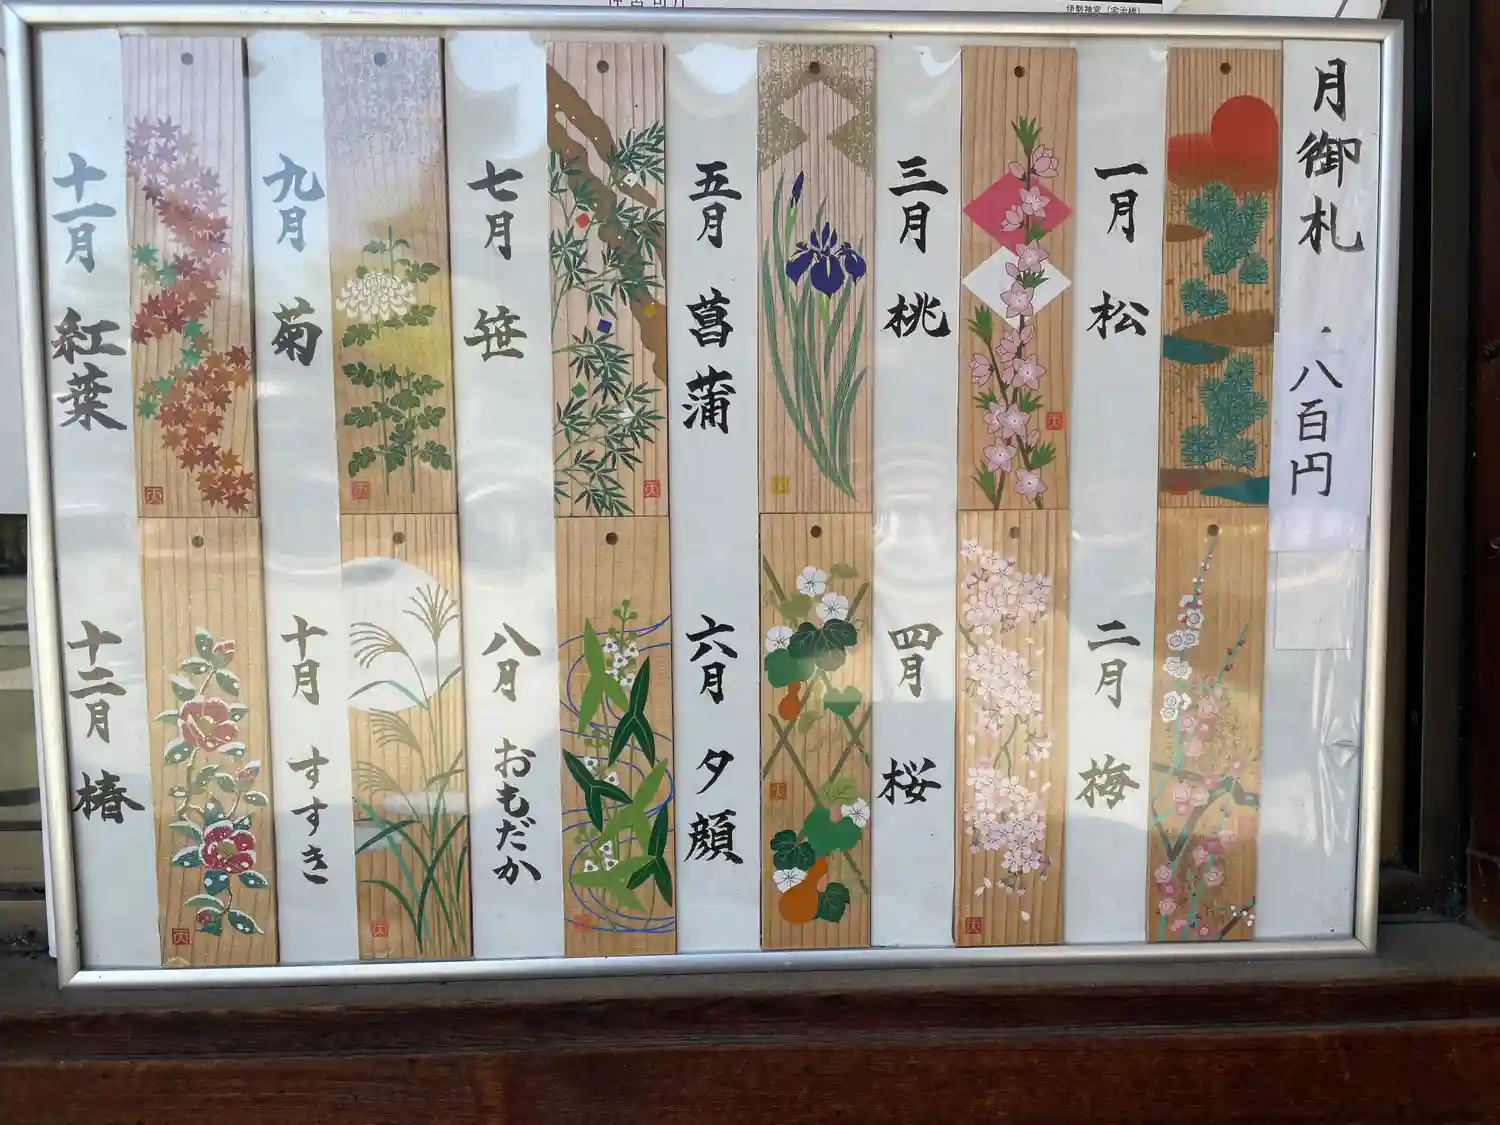 伊勢神宮(宇治橋)
月御札
八百円
一月 松
二月 梅
三月 桃
四月 桜
五月 菖蒲
六月 夕顔
七月 笹
八月 おもだか
九月 菊
十月 すすき
十一月 紅葉
十二月 椿